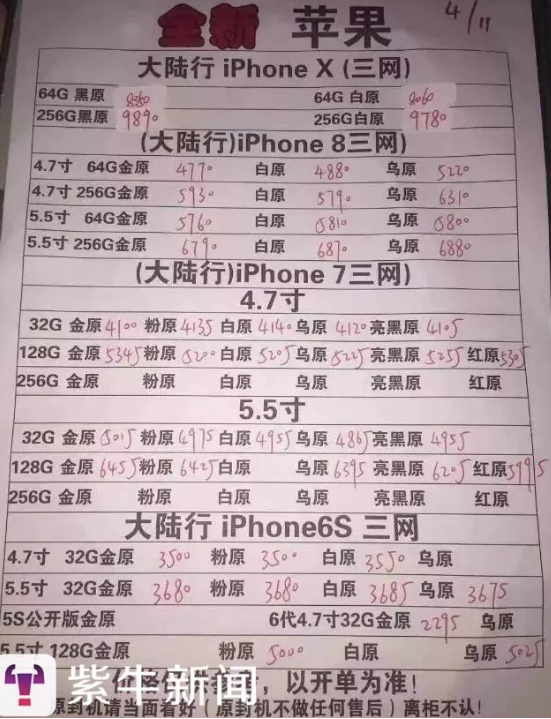 全新 苹果 4/11
大陆行 iPhone X (三网)
64G 黑原 8350 64G 白原 8060
256G黑原 9890 256G白原 9780
(大陆行)iPhone 8三网)
4.7寸 64G金原 4770 白原 4880 乌原 5220
4.7寸 256G金原 5930 白原 5790 乌原 6310
5.5寸 64G金原 5760 白原 5810 乌原 5800
5.5寸 256G金原 6790 白原 6870 乌原 6880
(大陆行)iPhone 7三网)
4.7寸
32G 金原 4100 粉原 4135 白原 4140 乌原 4120 亮黑原 4105
128G 金原 5345 粉原 5200 白原 5205 乌原 5225 亮黑原 5255 红原 5305
256G 金原 粉原 白原 乌原 亮黑原 红原
5.5寸
32G 金原 5015 粉原 4975 白原 4955 乌原 4865 亮黑原 4955
128G 金原 6455 粉原 6425 白原 乌原 6395 亮黑原 6205 红原 5995
256G 金原 粉原 白原 乌原 亮黑原 红原
大陆行 iPhone6S 三网
4.7寸 32G金原 3500 粉原 3500 白原 3550 乌原
5.5寸 32G金原 3680 粉原 3680 白原 3685 乌原 3675
5S公开版金原 6代4.7寸32G金原 2295 乌原
5.5寸 128G金原 粉原 5000 白原 乌原 5025
以开单为准!
紫牛新闻
原封机请当面看好(原封机不做任何售后)离柜不认!